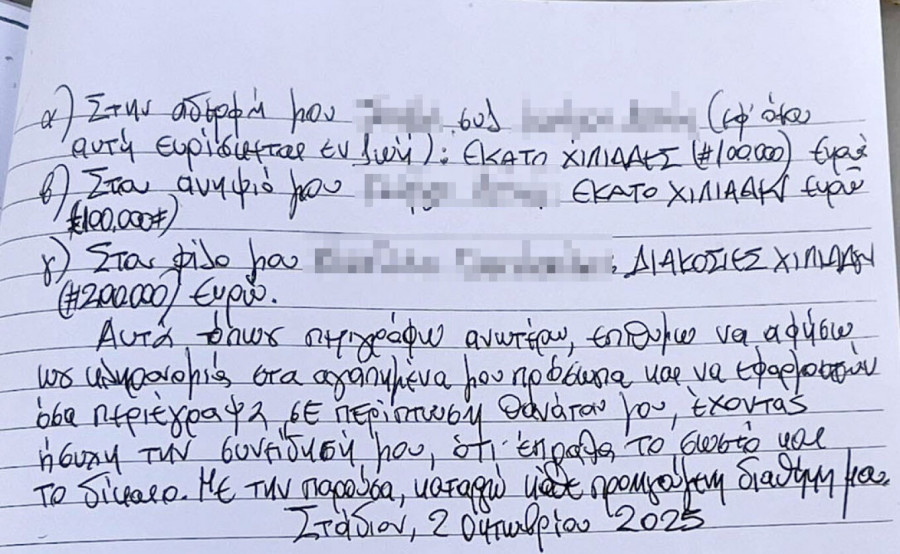 α) Στην αδερφή μου συζ (εφ' όσον
αυτή ευρίσκεται εν ζωή): ΕΚΑΤΟ ΧΙΛΙΑΔΕΣ (#100.000) Ευρώ
β) Στον ανηψιό μου ΕΚΑΤΟ ΧΙΛΙΑΔΕΣ ευρώ
(#100.000#)
γ) Στον φίλο μου : ΔΙΑΚΟΣΙΕΣ ΧΙΛΙΑΔΕΣ
(#200.000) Ευρώ.
Αυτά, όπως περιγράφω ανωτέρω, επιθυμώ να αφήσω
ως κληρονομιά στα αγαπημένα μου πρόσωπα και να εφαρμοστούν
όσα περιέγραψα, σε περίπτωση θανάτου μου, έχοντας
ήσυχη την συνείδησή μου, ότι έπραξα το σωστό και
το δίκαιο. Με την παρούσα, καταργώ κάθε προηγούμενη διαθήκη μου.
Στάδιον, 2 Οκτωβρίου 2025